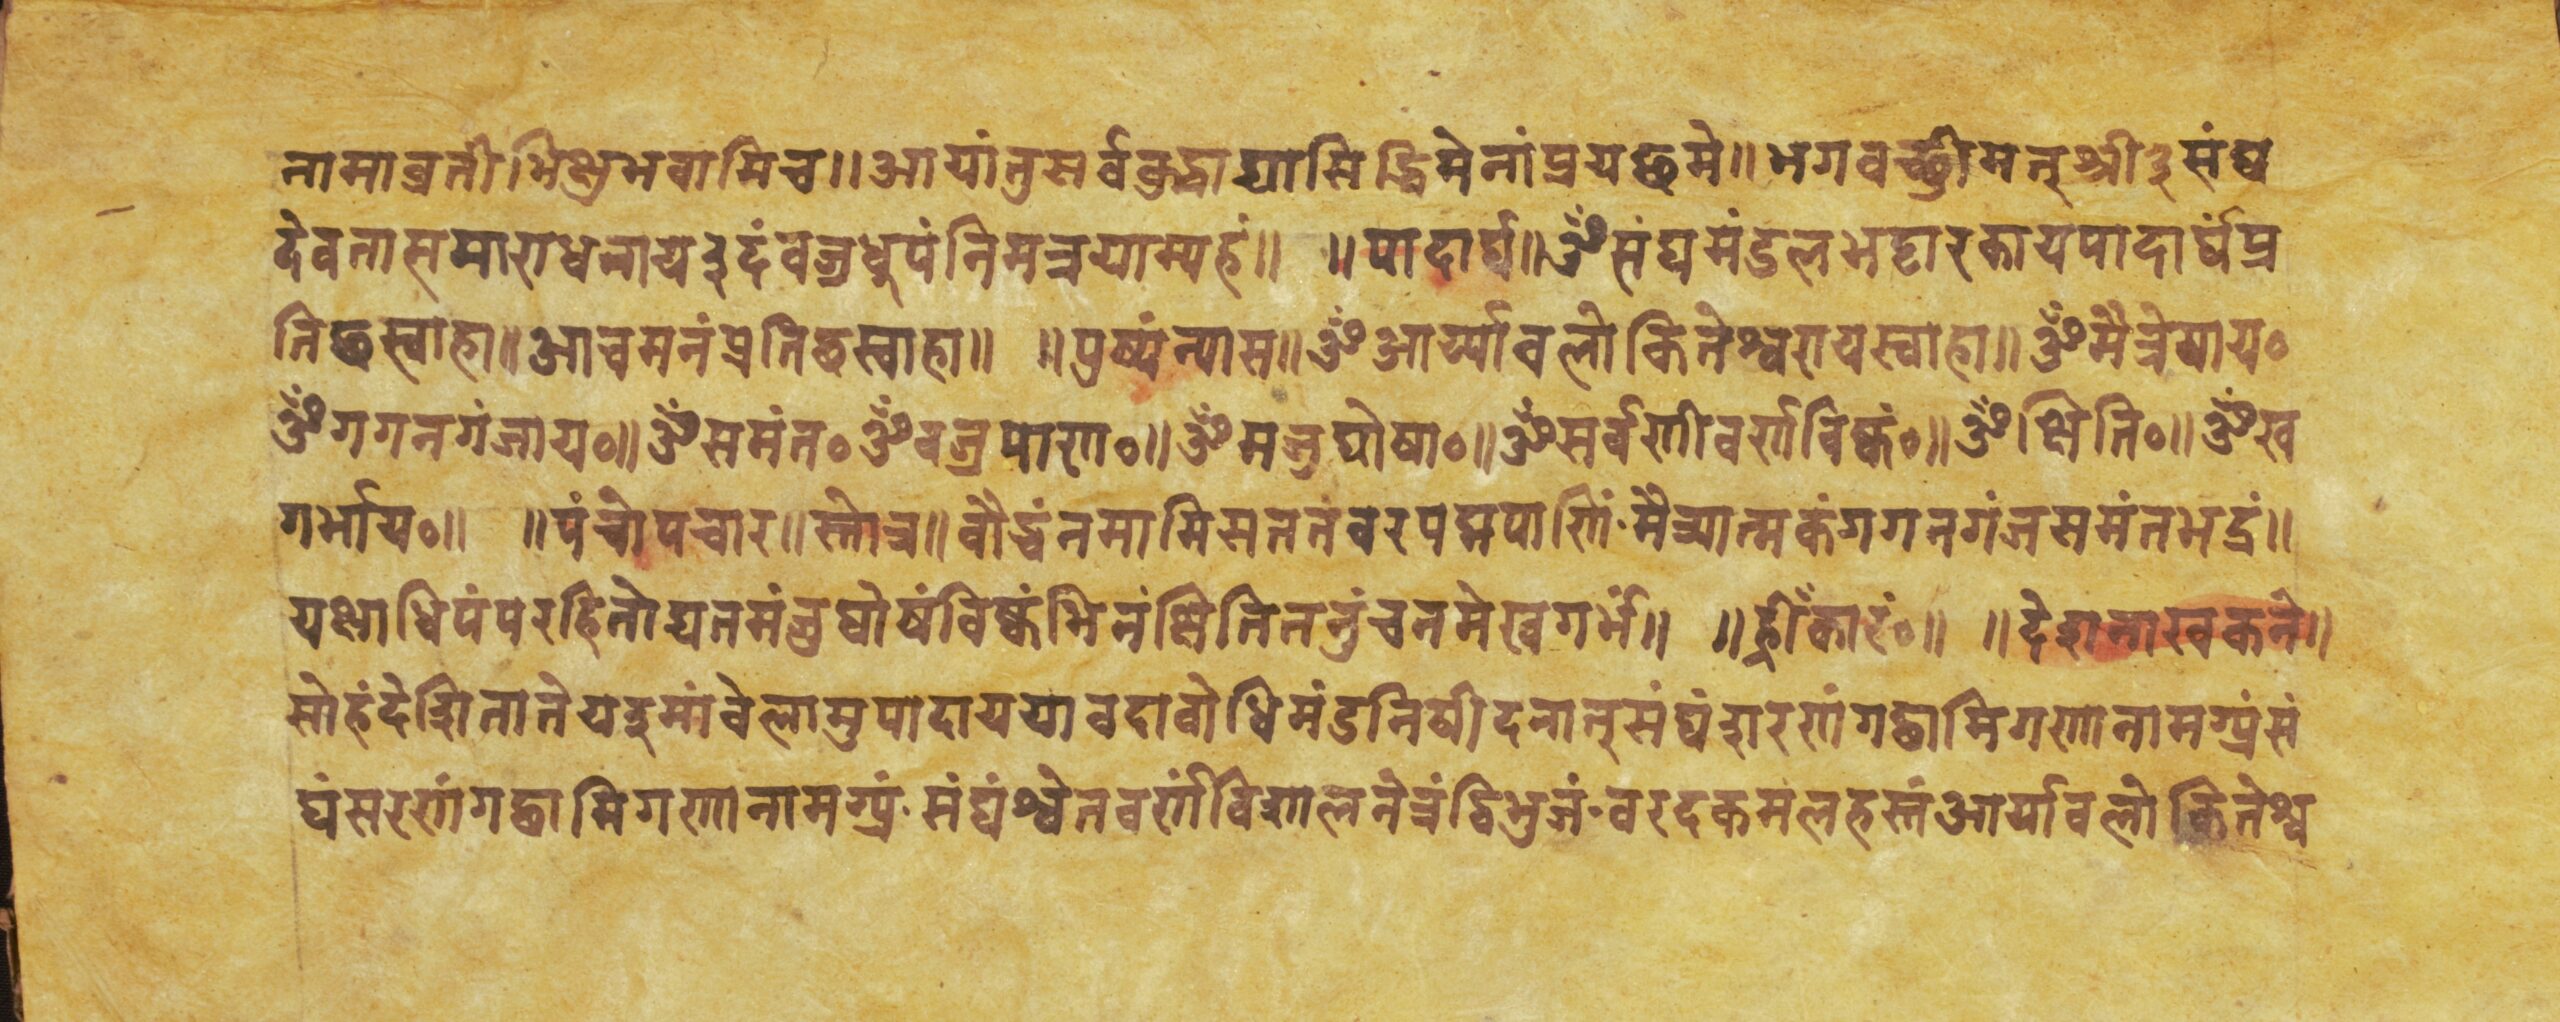 नामाव्रतीभिक्षुभवामिच॥आयांतुसर्वबुद्धाद्यासिद्धिमेनांप्रयछमे॥भगवच्छ्रीमन्श्री३संघ
देवतासमाराधनायइदंवज्रधुपंनिमन्त्रयाम्यहं॥ ॥पादार्घ॥ॐसंघमंडलभट्टारकायपादार्घंप्र
तिछस्वाहा॥आचमनंप्रतिछस्वाहा॥ ॥पुष्पंन्यास॥ॐआर्य्यावलोकितेश्वरायस्वाहा॥ॐमैत्रेयाय०
ॐगगनगंजाय०॥ॐसमंत०ॐवज्रपाणा०॥ॐमञ्जुघोषा०॥ॐसर्वणीवर्णविष्कं०॥ॐक्षिति०॥ॐख
गर्भाय०॥ ॥पंचोपचार॥स्तोत्र॥वौद्धंनमामिसततंवरपद्मपाणिं·मैत्र्यात्मकंगगनगंजसमंतभद्रं॥
यक्षाधिपंपरहितोद्यतमंजुघोषंविष्कंभिनंक्षितिननुंचनमेखगर्भं॥ ॥ह्रीँकारं०॥ ॥देशनाखकने॥
सोहंदेशितानेयइमांवेलामुपादाययावदावोधिमंडनिषीदनान्संघंशरणंगछामिगणानामग्रंसं
घंसरणंगछामिगणानामग्रं·संघंश्वेतवर्णंविशालनेत्रंद्विभुजं·वरदकमलहस्तंआर्यावलोकितेश्व